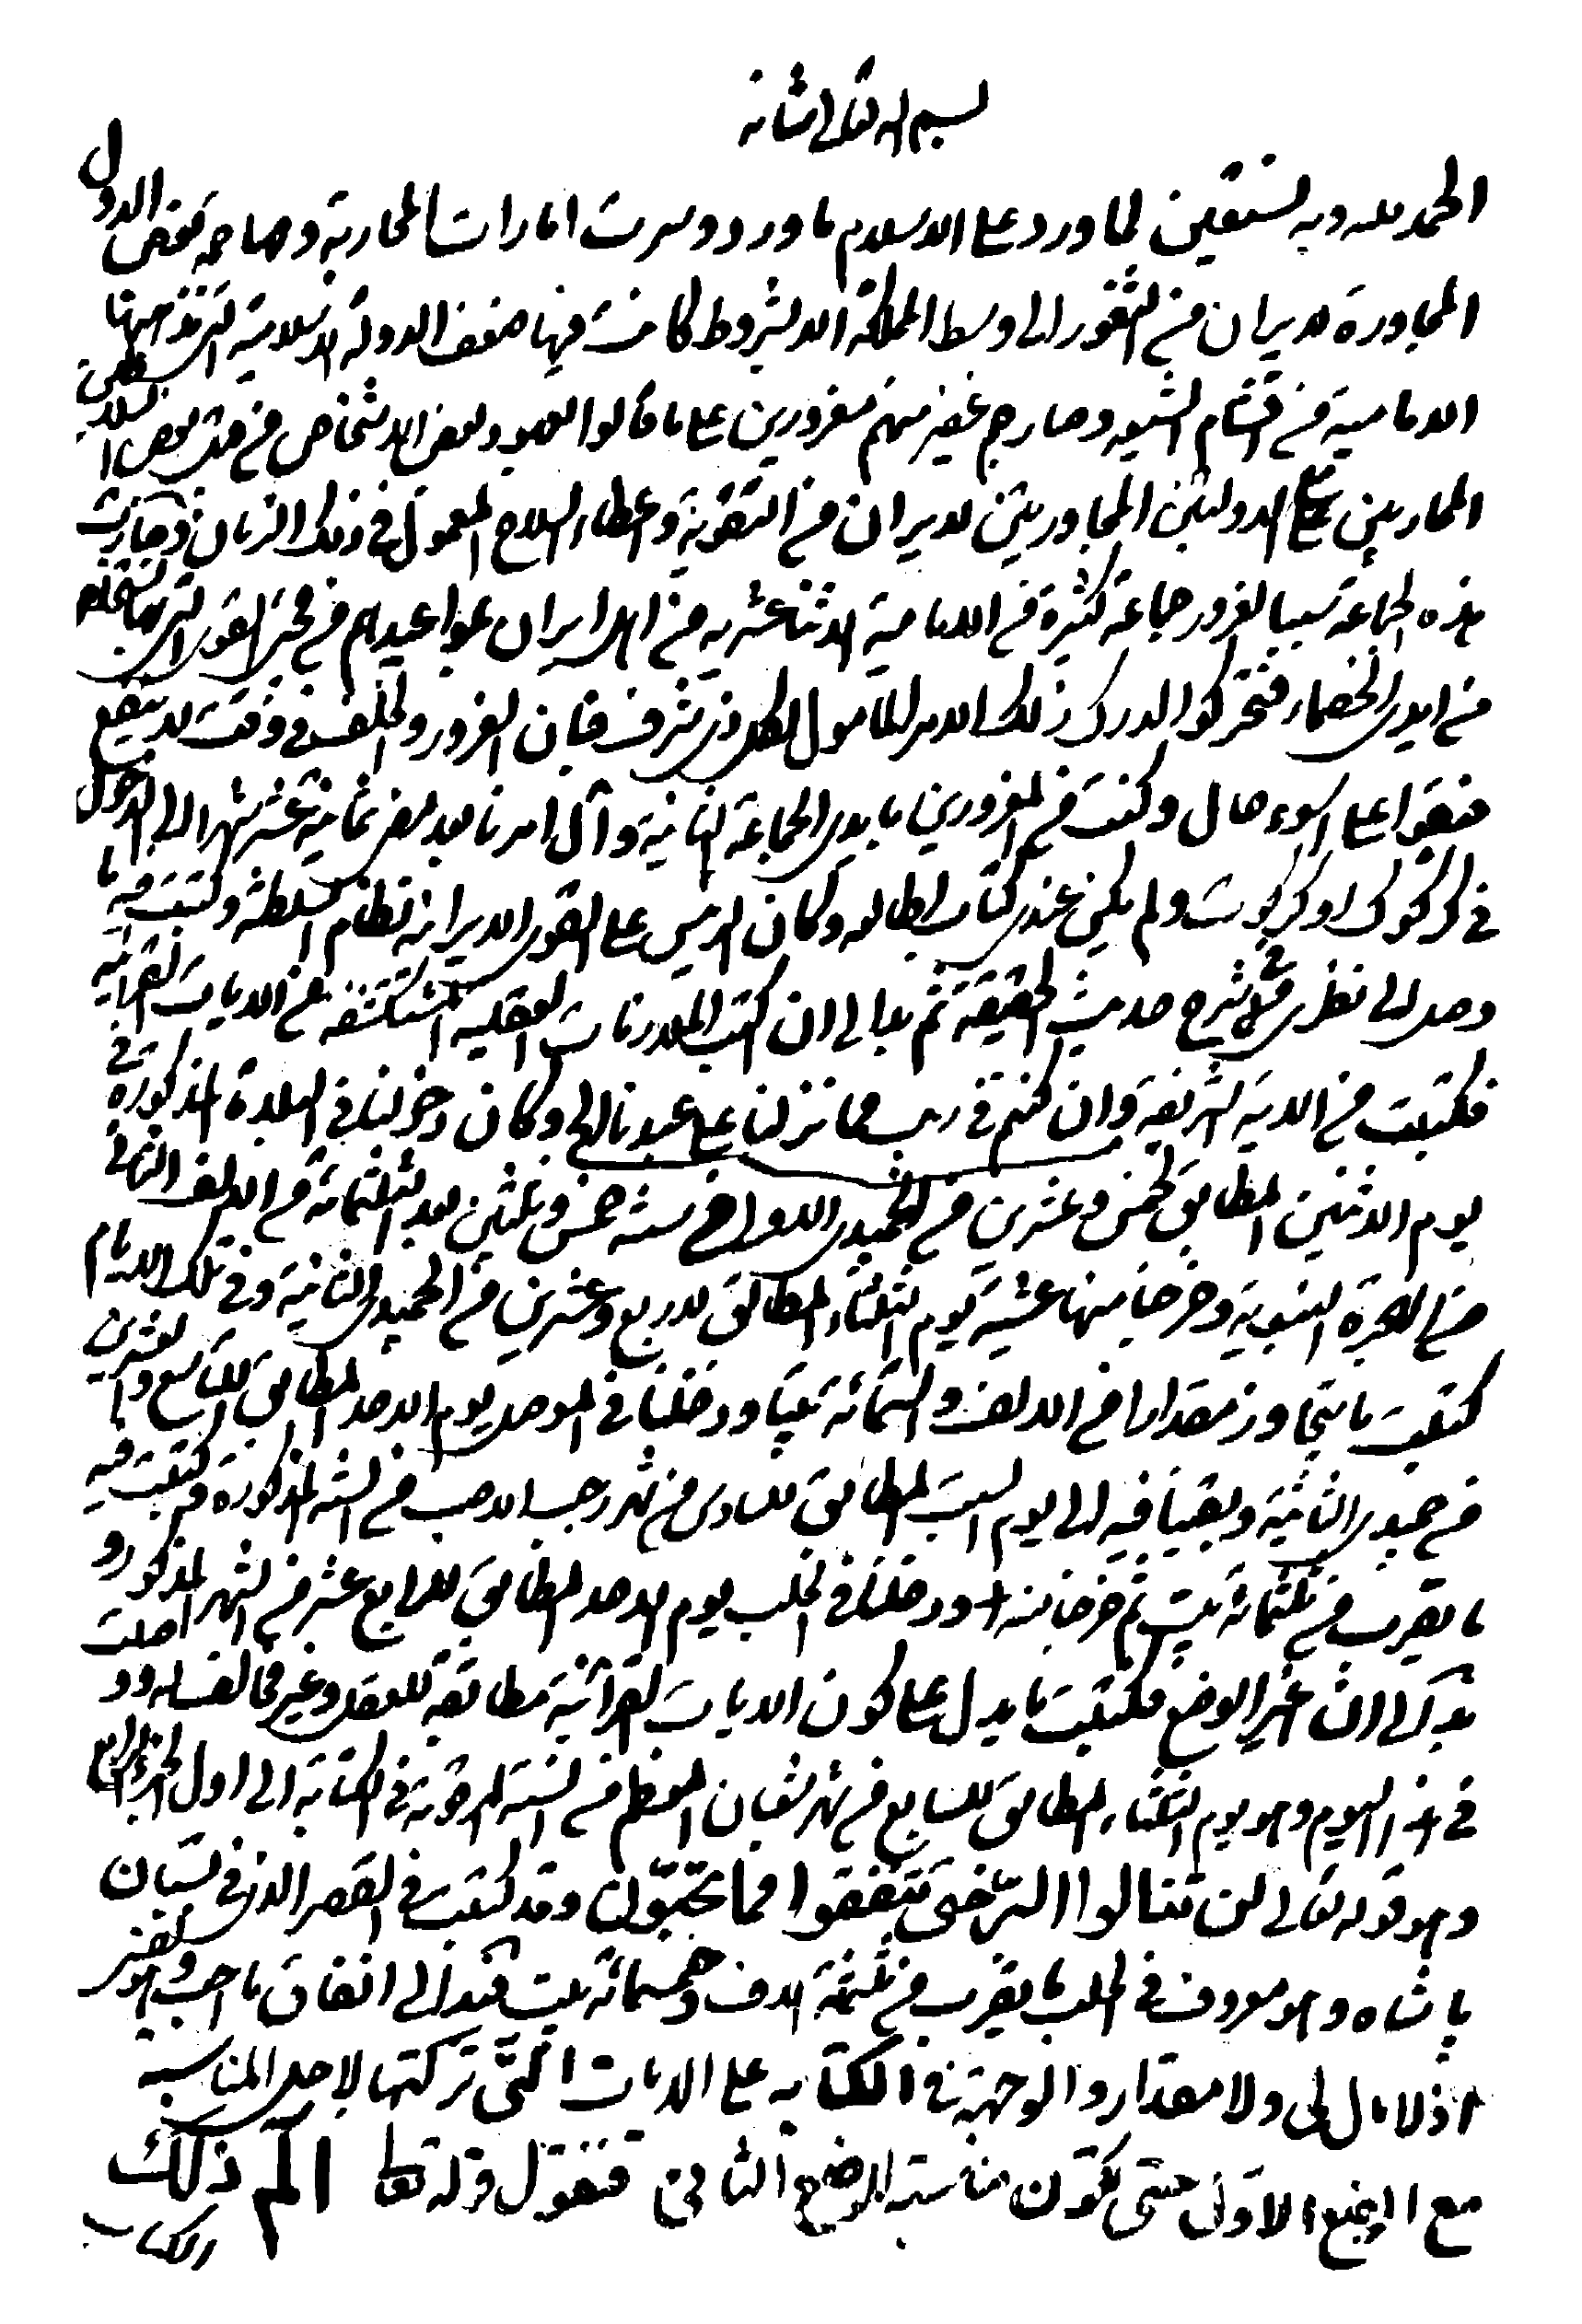 بسم الله تعالى شانه
الحمد لله وبه نستعين لما ورد على الاسلام ما ورد وسرت امارات المحاربة وهاجمه بعض الدول
المجاورة لايران من الثغور الى وسط المملكة الا بشروط كانت فيها ضعف الدولة الاسلامية التي مذهبها
الامامية من اقسام الشيعه وصار جم غفير منهم مغرورين على ما قالوا بعض الاشخاص من بعض السلاطين
المحاربين مع الدولتين المجاورتين لايران من التقوية واعطاء السلاح المعمول في ذلك الزمان وصارت
هذه الجماعة سببا لغرور جماعة كثيرة من الامامية الاثنا عشريه من اهل ايران بمواعيدهم
من ايدي الخصماء فتحركوا لدرك ذلك الامر المأمول لكل ذي شرف فبان الغرور والخلف في وقت لا ينفع
فبقوا على اسوء حال وكنت من المغرورين بايدي الجماعة الثانية وآل امرنا بعد مضي ثمانية عشر شهرا الى الدخول
في كركوك او كركوت ولم يكن عندي كتاب اطالعه وكان الرئيس على القوى الايرانيه نظام السلطنه وكتبت فيه ما
وصل الى نظري في شرح حديث الحقيقة ثم بدا لي ان اكتب المدركات العقليه المستكشفه من الايات القرآنيه
فكتبت من الاية الشريفة وان كنتم في ريب مما نزلنا على عبدنا الخ وكان دخولنا في البلدة المذكورة في
يوم الاثنين المطابق لخمس وعشرين من الجميدى الاولى من سنه خمس وثلثين بعد الثلثمائة من الالف الثاني
من الهجرة النبوية وخرجنا منها عشية يوم الثلثاء المطابق لاربع وعشرين من الجميدى الثانية وفي تلك الايام
كتبت ما يتجاوز مقدارا من الالف والستمائة بيتا ودخلنا في الموصل يوم الاحد المطابق للتاسع والعشرين
من جميدى الثانية وبقينا فيه الى يوم السبت المطابق للسادس من شهر رجب الاصب من السنه المذكورة وكتبت فيه
ما يقرب من ثلثمائة بيت ثم خرجنا منه ودخلنا في الحلب يوم الاحد المطابق للرابع عشر من الشهر المذكور و
بدا لي ان اغير الوضع فكتبت ما يدل على كون الايات القرآنية مطابقة للعقل وغير مخالفة له ووصلت
في آخر اليوم وهو يوم الثلثاء المطابق للسابع من شهر شعبان المعظم من السنة المرقومة في الكتابة الى اول الجزء الرابع
وهو قوله تعالى لن تنالوا البر حتى تنفقوا مما تحبون وقد كتبت في القصر الذي في بستان
پاشاه وهو معروف في الحلب ما يقرب من ثلثة الاف وخمسمائة بيت فبدا لي انفاق ما احب والفقير
اذ لا مال لي ولا مقدار والوجهة في الكتابه على الايات التي تركتها لاجل المناسبة
مع الوضع الاول حتى تكون مناسبة للوضع الثاني فنقول قوله تعالى الم ذلك
الكتاب